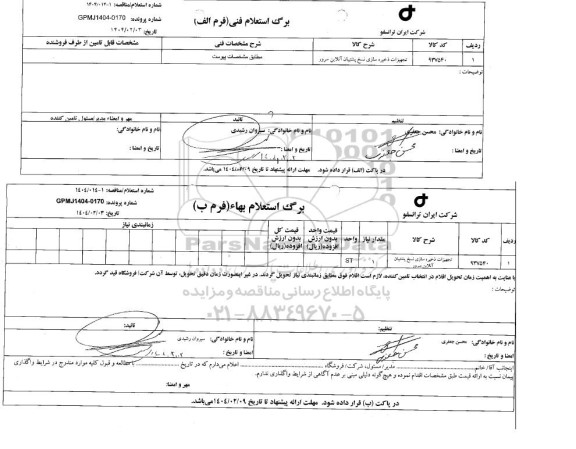 شماره استعلام/مناقصه: ۱۴۰۴/۰۱۴-۱
برگ استعلام فنی(فرم الف)
شماره پرونده: GPMJ1404-0170
شرکت ایران ترانسفو
تاریخ: ۱۴۰۴/۰۲/۰۳
ردیف کد کالا شرح کالا شرح مشخصات فنی مشخصات قابل تامین از طرف فروشنده
۱ ۹۳۷۵۴۰ تجهیزات ذخیره سازی نسخ پشتیبان آنلاین سرور مطابق مشخصات پیوست
توضیحات :
تنظیم تائید مهر و امضاء مدیر/مسئول تامین کننده
نام و نام خانوادگی: محسن جعفری نام و نام خانوادگی: سیروان رشیدی نام و نام خانوادگی:
امضا و تاریخ : امضا و تاریخ : تاریخ و امضا :
در پاکت (الف) قرار داده شود. مهلت ارائه پیشنهاد تا تاریخ ۱۴۰۴/۰۲/۰۹ می‌باشد.
شماره استعلام/مناقصه: ۱۴۰۴/۰۱۴-۱
برگ استعلام بهاء(فرم ب)
شماره پرونده: GPMJ1404-0170
شرکت ایران ترانسفو
تاریخ: ۱۴۰۴/۰۲/۰۳
ردیف کد کالا شرح کالا مقدار نیاز واحد قیمت واحد بدون ارزش افزوده(ریال) قیمت کل بدون ارزش افزوده(ریال) زمانبندی نیاز
۱ ۹۳۷۵۴۰ تجهیزات ذخیره سازی نسخ پشتیبان آنلاین سرور ۱ ST
با عنایت به اهمیت زمان تحویل اقلام در انتخاب تامین کننده، لازم است اقلام فوق مطابق زمانبندی نیاز تحویل گردند. در غیر اینصورت زمان دقیق تحویل، توسط آن شرکت/فروشگاه قید گردد.
توضیحات :
پایگاه اطلاع رسانی مناقصه و مزایده
۰۲۱-۸۸۳۴۹۶۷۰-۵
تنظیم: تائید:
نام و نام خانوادگی: محسن جعفری نام و نام خانوادگی: سیروان رشیدی
امضا و تاریخ : امضا و تاریخ :
اینجانب آقا/خانم مدیر/مسئول، شرکت/فروشگاه اعلام می‌دارم که در تاریخ با مطالعه و قبول کلیه موارد مشرح در شرایط واگذاری
پیمان نسبت به ارائه قیمت طبق مشخصات اقدام نموده و هیچ گونه دلیلی مبنی بر عدم آگاهی از شرایط واگذاری ندارم.
مهر و امضا:
در پاکت (ب) قرار داده شود. مهلت ارائه پیشنهاد تا تاریخ ۱۴۰۴/۰۲/۰۹ می‌باشد.